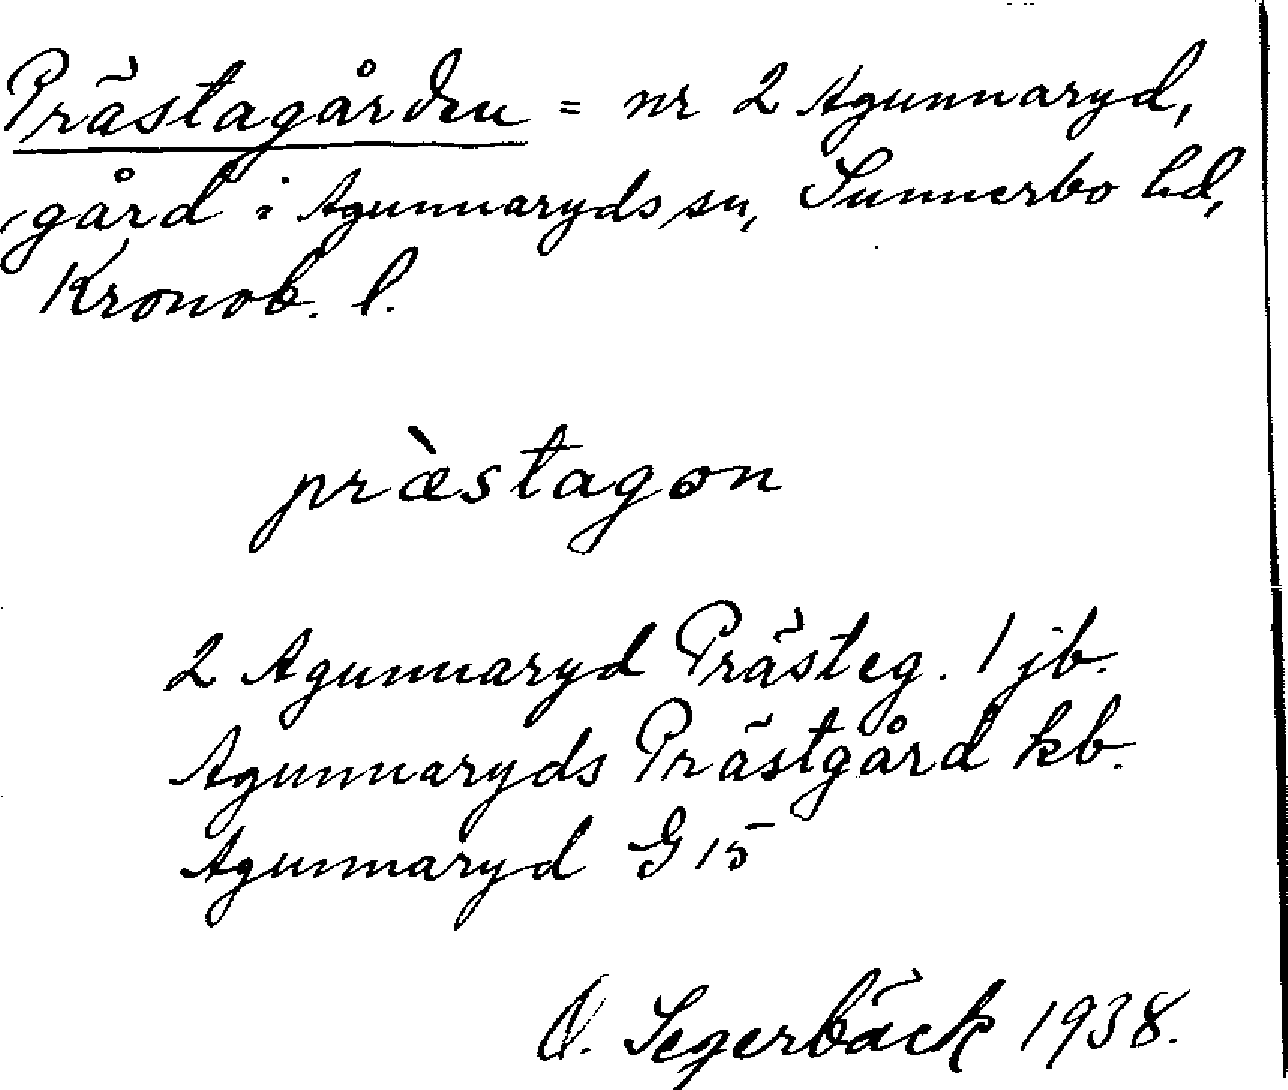 Prästagården = nr 2 Agunnaryd,
gård i Agunnaryds sn, Sunnerbo hd,
Kronob. l.
præ̀stagon
2 Agunnaryd Prästeg. 1 jb.
Agunnaryds Prästgård kb.
Agunnaryd G 15
O. Segerbäck 1938.